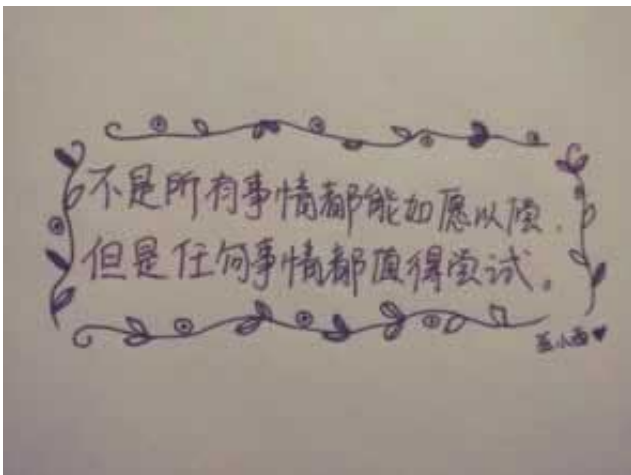 不是所有事情都能如愿以偿，
但是任何事情都值得尝试。
小西